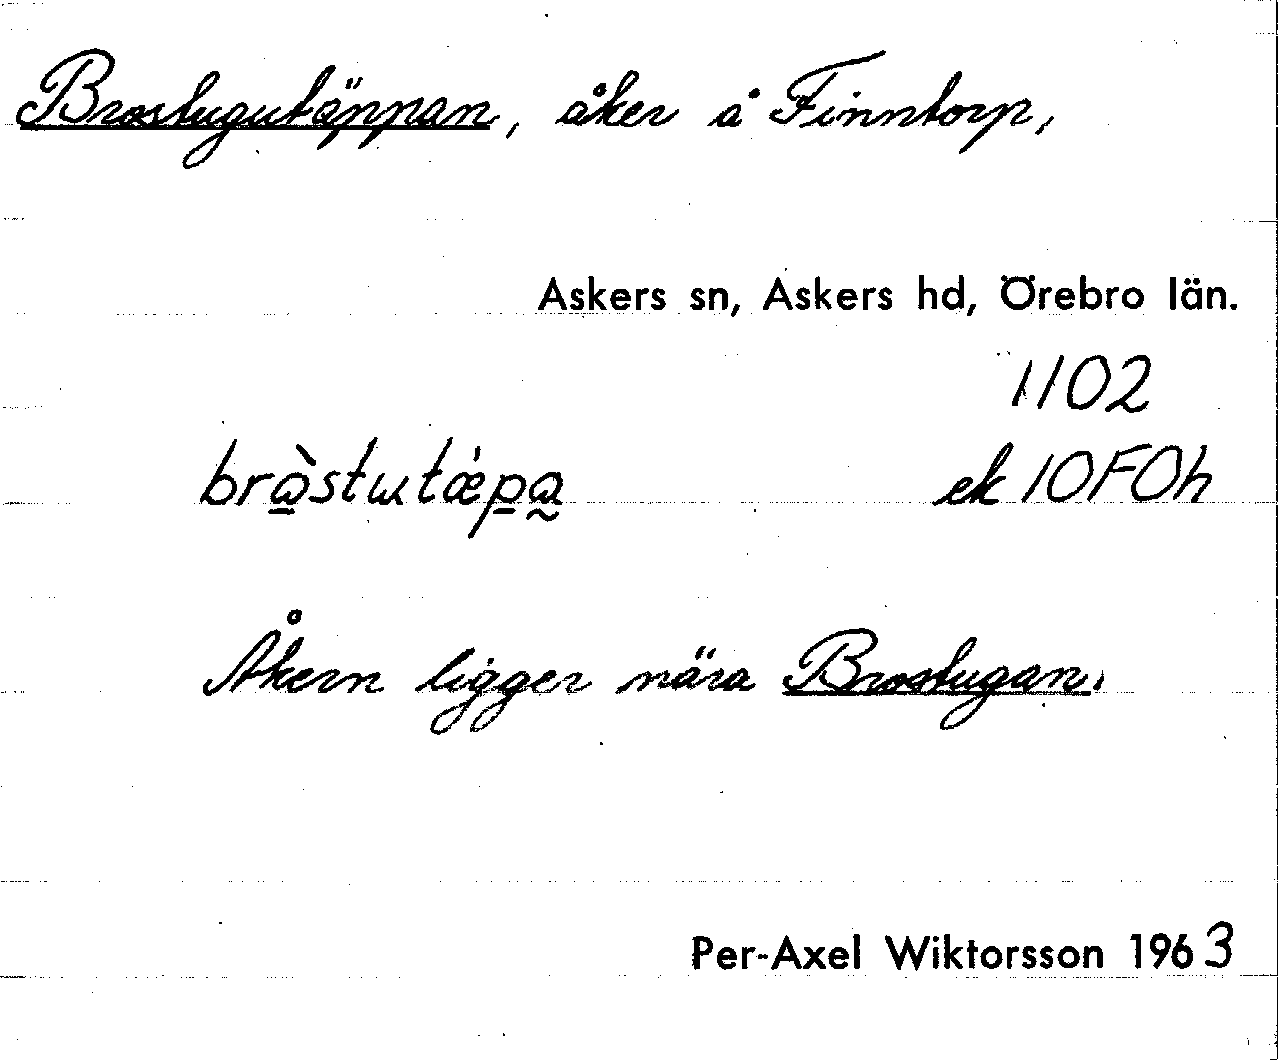 Brostugutäppan, åker å Finntorp,
Askers sn, Askers hd, Örebro län.
1102
brà̱stutæ̀p̱a̰ ek 10F0h
Åkern ligger nära Brostugan.
Per-Axel Wiktorsson 1963